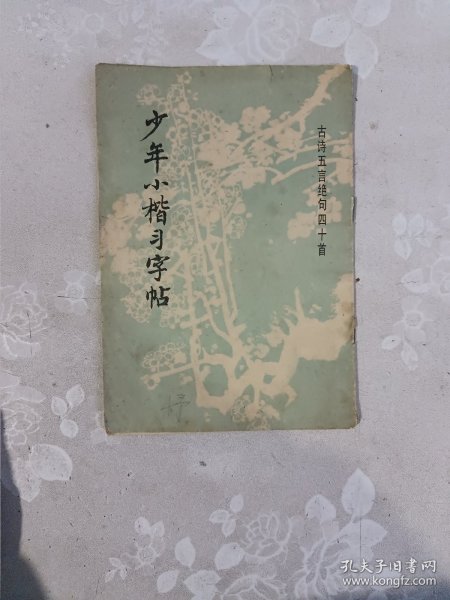 少年小楷习字帖
古诗五言绝句四十首
孔夫子旧书网
www.kongfz.com